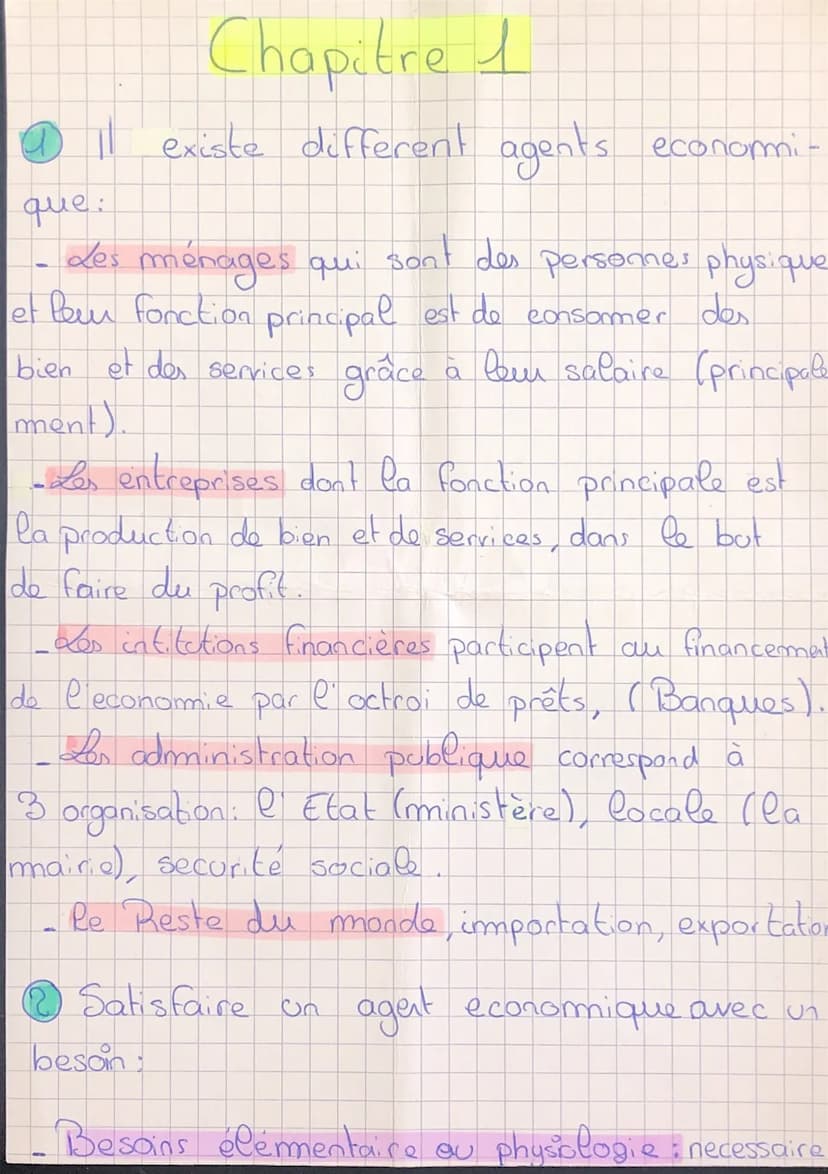 Chapitre 1
① Il existe different agents economi-
que:
- Les ménages qui sont des personnes physique
et leur fonction principal est de consommer des
bien et des services grâce à leur salaire (principale
ment).
- Les entreprises dont la fonction principale est
la production de bien et de services, dans le but
de faire du profit.
- Les intitutions financières participent au financement
de l'economie par l'octroi de prêts, (Banques).
- Les administration publique correspond à
3 organisation: l'Etat (ministère), locale (la
mairie), securité sociale.
- le Reste du monde, importation, exportation
② Satisfaire un agent economique avec un
besoin:
- Besoins élémentaire ou physiologie : necessaire